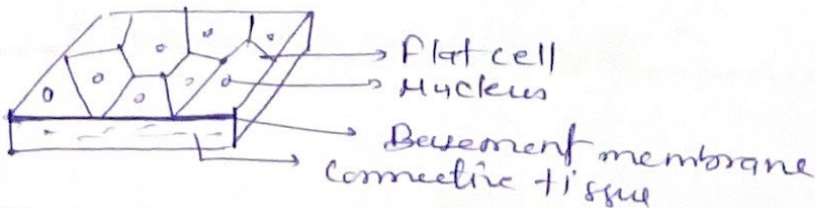 Flat cell
Nucleus
Basement membrane
Connective tissue